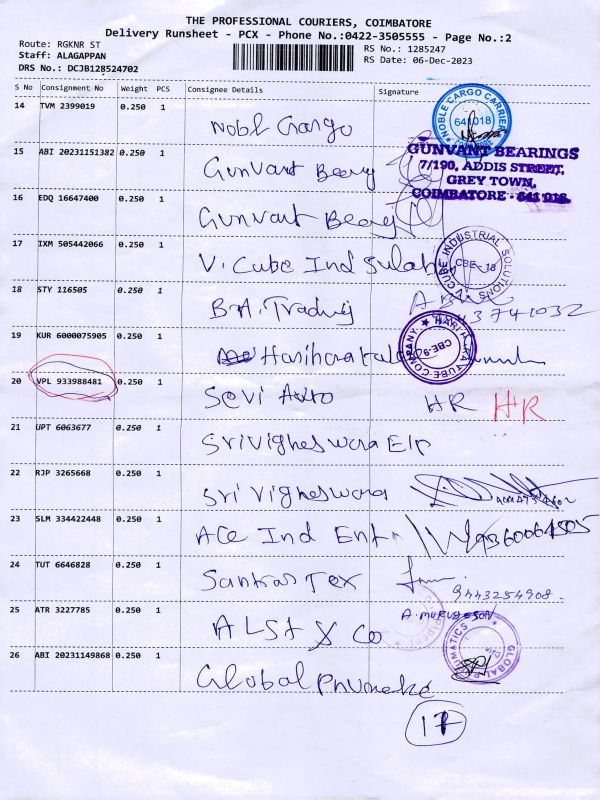 THE PROFESSIONAL COURIERS, COIMBATORE
Delivery Runsheet - PCX - Phone No.:0422-3505555 - Page No.:2
Route: RGKNR ST
RS No.: 1285247
Staff: ALAGAPPAN
RS Date: 06-Dec-2023
DRS No.: DCJB128524702
S No Consignment No Weight PCS Consignee Details Signature
14 TVM 2399019 0.250 1 Nobl Cargo
NOBLE CARGO CARRIER 641018
15 ABI 20231151382 0.250 1 Gunvant Beary
GUNVANT BEARINGS
7/190, ADDIS STREET,
GREY TOWN,
COIMBATORE - 641 018.
16 EDQ 16647400 0.250 1 Gunvant Beary
17 IXM 505442066 0.250 1 V. Cube Ind
V CUBE INDUSTRIAL SOLUTIONS CBE-18
18 STY 116505 0.250 1 B.A. Trading
43741032
19 KUR 6000075905 0.250 1
HARIHARA TUBE COMPANY
20 VPL 933988481 0.250 1 Sevi Auto HR HR
21 UPT 6063677 0.250 1 Srivigheswara Elp
22 RJP 3265668 0.250 1 Sri Vigheswara
23 SLM 334422448 0.250 1 Ace Ind Ent
9360064505
24 TUT 6646828 0.250 1 Sankas Tex
9443254908.
25 ATR 3227785 0.250 1 ALSt & Co
A. MURUGESAN
26 ABI 20231149868 0.250 1 Global Phumeke
GLOBAL PNEUMATICS
17